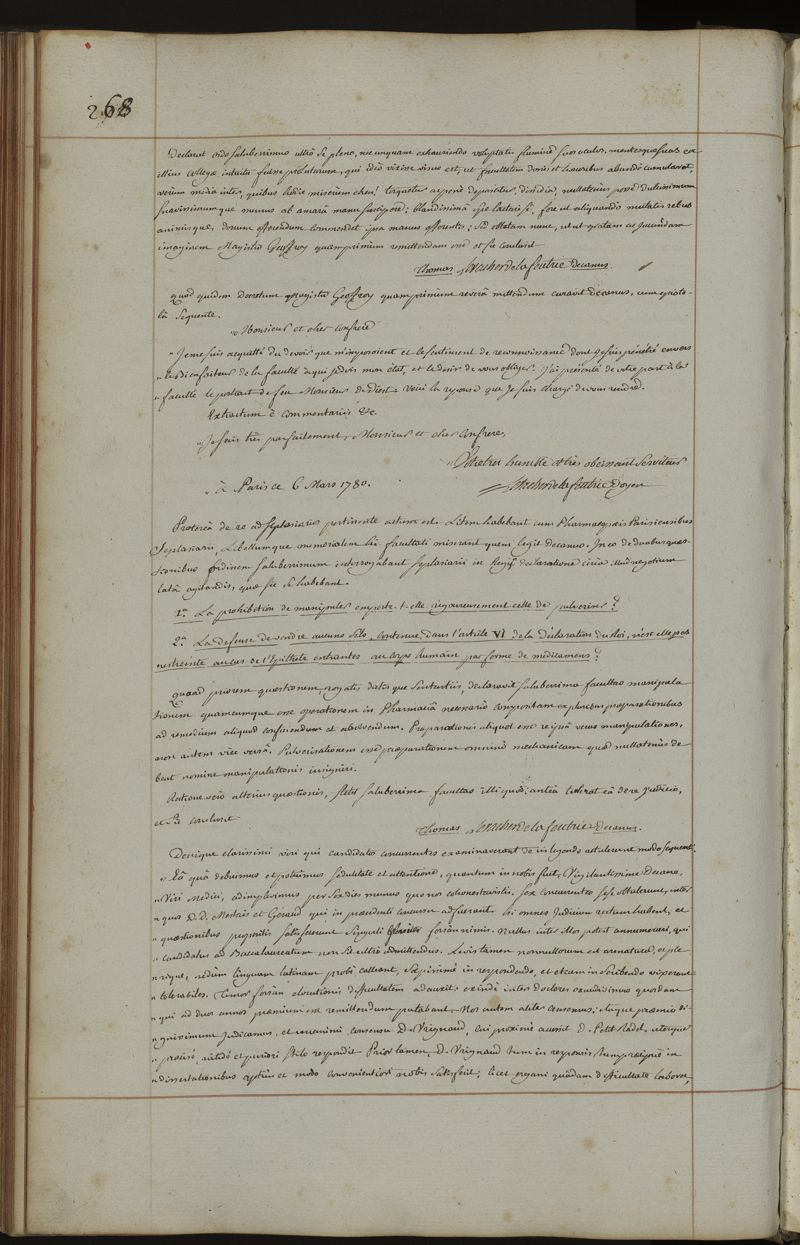 268
Declarat ordo saluberrimus ultrò se pleno, nec unquam exhauriendo voluptatis flumine suos oculos, mentesque suas ex
illius effigie intuitu fuisse, qui ideò vixisse visus est, ut facultatem donis et honoribus abundè cumularet,
verùm inter, quibus hodie miseriem eheu! torquetur deposcitur, nullatenùs posse dulcissimum
suavissimumque munus ab amarâ manu suscipere; blandissimâ spe lactari se, fore ut aliquando mutatis rebus
animisque, donum offerendum commendet ipsa manus offerentis; sed oblatam nunc, ut ut gratam ac jucundam
imaginem Magistro Geoffroy quamprimum remittendam esse et sic conclusit
Thomas Le Vacher de la feutrie Decanus.
Quod quidem decretum Magistro Geoffroy quamprimum reverâ mittendum curavit decanus, cum episto-
lâ sequente.
" Monsieur et cher confrere
" Je me suis acquitté du devoir que m'imposoient et le sentiment de reconnoissance dont je suis pénétré envers
" les bienfaiteurs de la faculté à qui je dois mon état, et le desir de vous obliger. J'ai présenté de votre part à la
" faculté le portrait de feu Monsieur de Diest. Voici la reponse que je suis chargé de vous rendre.
Extractum è commentariis &c.
" Je suis très parfaitement, Monsieur et cher Confrere,
" Votre tres humble et très obeissant Serviteur
" à Paris ce 6 Mars 1780.
Le Vacher de la feutrie Doyen
Postereà de re ad Seplasiarios pertinente actum est. Litem habebant cum Pharmacopœis Parisiensibus
Seplasiarii, Libellumque memorialem hi facultati miserant quem legit decanus. In eo de duabus quæs-
tionibus ordinem saluberrimum interrogabant seplasiarii in Regis declaratione circa illud negotium
latâ agitandis, quæ sic se habebant.
1.° La prohibition de manipuler emporte-t-elle rigoureusement celle de pulveriser?
2.° La defense de vendre aucuns sels, contenue dans l'article VI de la Declaration du Roi, n'est elle pas
restreinte au cas de l'Epithete entrantes au corps humain par forme de médicamens?
Quoad priorem quæstionem, rogatis dictisque sententiis, declaravit saluberrima facultas manipula
tionem quamcumque esse operationem in Pharmaciâ necessario compositam ex pluribus præparationibus
ad remedium aliquod conficiendum et absolvendum. Præparationes aliquot esse reipsâ veras manipulationes,
non autem vice versâ. Pulverisationem esse præparationem omninò mechanicam quæ nullatenùs de
beat nomine manipulationis insigniri.
Ratione verò alterius quæstionis, stetit saluberrima facultas illi quod anteà tulerat eâ de re judicio,
et sic conclusit
Thomas Le Vacher de la feutrie Decanus.
Denique clarissimi viri qui candidatos concurrentes examinaverant de iis legendo attulerunt modo sequenti.
" Eâ quâ debuimus et potuimus sedulitate et attentione, quantum in nobis fuit, Vigilantissime Decane,
" Viri Medici, adimplevimus per sex dies munus quo nos cohonestavistis. Sex concurrentes sese obtulerunt, inter
" quos D.D. Mestais et Géraud qui in præcedenti concursu adfuerant. hi omnes judicium rectum habent, et
" quæstionibus propositis satisfecerunt singuli forsan nimis. Nullus inter illos potest annumerari, qui
" candidatus ad Baccalaureatum non sit ultrò admittendus. Levis tamen nonnullorum est armatura, et ple
" rique, nedùm linguam latinam probè calleant, sæpissimè in respondendo, et etiam in scribendo vix
" tolerabiles. Timor forsan elocutionis difficultatem adauxit; exindè inter doctores examinimus quosdam
" qui ad duos annos præmium esse remittendum putabant. Nos autem aliter censemus; illisque præmio di-
" gnissimum judicamus, et unanimi consensu D. Vrignaud, cui proximè accessit D. Petit Radel, uterque
" præcisè, nitidè et puriori stilo respondit. Prior tamen, D. Vrignaud tum in responsis tum præcipuè in
" dissertationibus aptiùs et modo convenientiori nobis satisfecit; licet organi quâdam difficultate laboret,